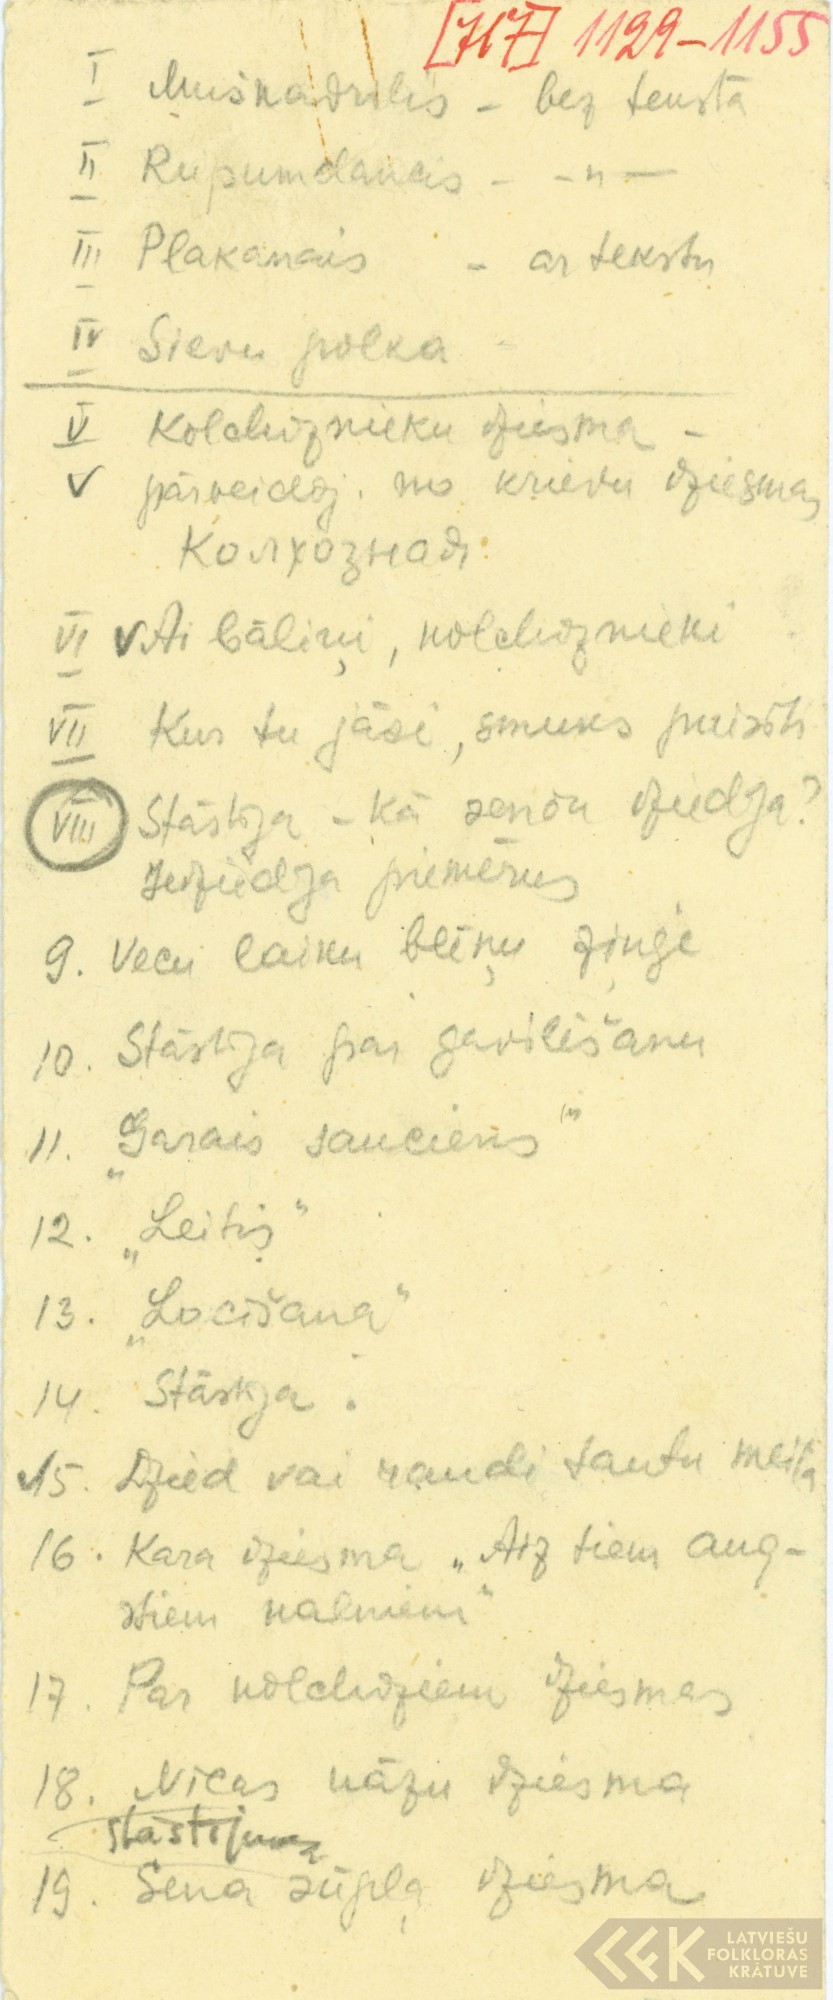 [717] 1129-1155
I Mušķadrilis - bez teksta
II Rupumdancis - -"-
III Plakanais - ar tekstu
IV Sievu polka -
V Kolchoznieku dziesma -
✓ pārveidoj. no krievu dziesmas
Колхозная
VI ✓ Ai bāliņi, kolchoznieki
VII Kur tu jāsi, smuks puisīt
VIII Stāstīja - kā senāk dziedāja?
Iedziedāja piemērus
9. Vecu laiku blēņu ziņģe
10. Stāstīja par gavilēšanu
11. „Garais sauciens"
12. „Leitis"
13. „Locīšana"
14. Stāstīja.
✓15. Dzied vai raudi tautu meita
16. Kara dziesma „Aiz tiem aug-
stiem kalniem"
17. Par kolchoziem dziesmas
18. Nīcas kāzu dziesma
stāstījums
19. Sena šūpļa dziesma
LATVIEŠU
FOLKLORAS
KRĀTUVE